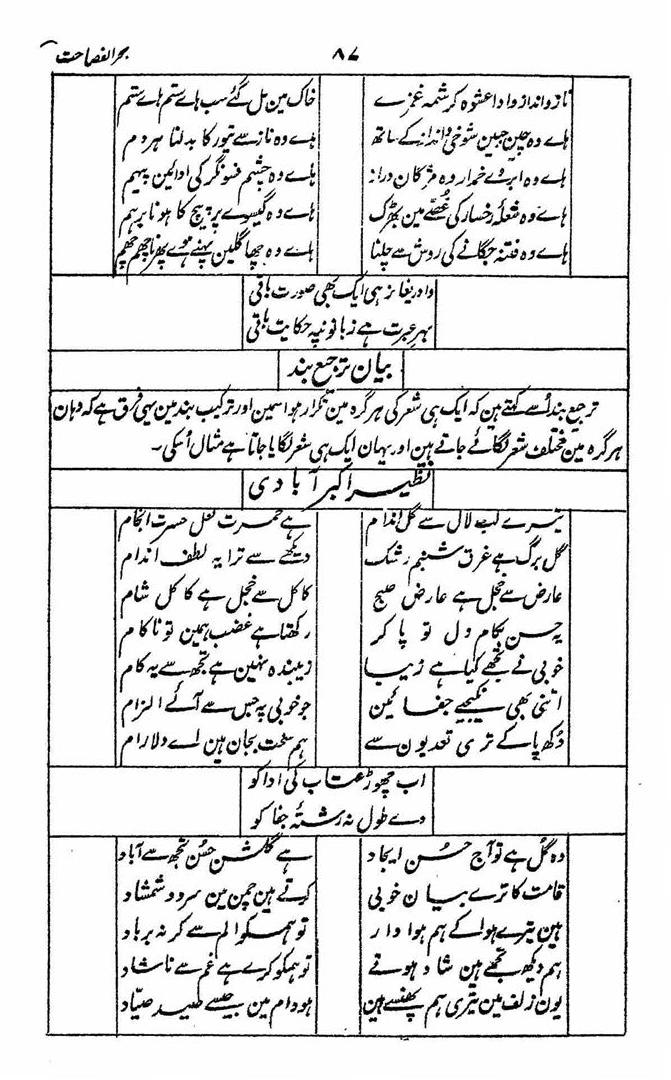 بحر الفصاحت
۸۷
ناز و انداز و ادا عشوہ کرشمہ غمزے
خاک مین مل گئے سب ہاے ستم ہاے ستم
ہاے وہ چین جبین شوخی و انداز کے ساتھ
ہاے وہ ناز سے تیور کا بدلنا ہر دم
ہاے وہ ابروے خمدار وہ مژگان دراز
ہاے وہ چشم فسونگر کی ادائین پیہم
ہاے وہ شعلۂ رخسار کی غصے مین بھڑک
ہاے وہ گیسوے پر پیچ کا ہونا برہم
ہاے وہ فتنہ جگانے کی روش سے چلنا
ہاے وہ چھاگلین پہنے ہوے پھرنا چھم چھم
وا دریغا نہ رہی ایک بھی صورت باقی
بہر عبرت ہے زبانونپہ حکایت باقی
بیان ترجیع بند
ترجیع بند اُسے کہتے ہین کہ ایک ہی شعر کی ہر گرہ مین تکرار ہو اسمین اور ترکیب بند مین یہی فرق ہے کہ وہان
ہر گرہ مین مختلف شعر لگائے جاتے ہین اور یہان ایک ہی شعر لگایا جاتا ہے مثال اُسکی۔
نظیر اکبر آبادی
تیرے لب لال سے گل اندام
ہے حسرت لعل حسرت انجام
گل برگ ہے غرق شبنم رشک
دیکھے سے ترا یہ لطف اندام
عارض سے خجل ہے عارض صبح
کاکل سے خجل ہے کاکل شام
یہ حسن بکام دل تو پا کر
رکھتا ہے غضب ہمین تو ناکام
خوبی نے تجھے کیا ہے زیبا
زیبندہ نہین ہے تجھ سے یہ کام
اتنی بھی نہ کیجیے جفائین
جو خوبی پہ جس سے آئے الزام
دکھ پا کے تری تعدیون سے
ہم سخت بجان ہین اے دلارام
اب چھوڑ عتاب کی ادا کو
دے طول نہ رشتۂ جفا کو
وہ گل ہے تو آج حسن ایجاد
ہے گلشن حسن تجھ سے آباد
قامت کا ترے بیان خوبی
کرتے ہین چمن مین سرو و شمشاد
ہین تیرے ہوا کے ہم ہوا دار
تو ہمکو الم سے کر نہ برباد
ہم دیکھ تجھے ہین شاد ہوتے
تو ہمکو کرے ہے غم سے ناشاد
یون زلف مین تیری ہم پھنسے ہین
ہو دام مین جیسے صید صیاد